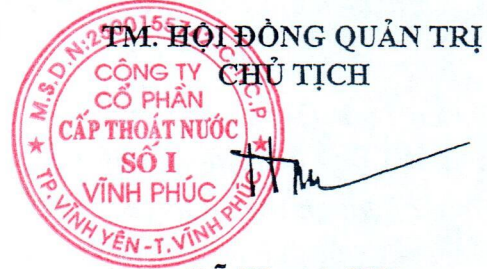 TM. HỘI ĐỒNG QUẢN TRỊ
CHỦ TỊCH
CÔNG TY
CỔ PHẦN
CẤP THOÁT NƯỚC
SỐ I
VĨNH PHÚC
TP. VĨNH YÊN - T. VĨNH PHÚC